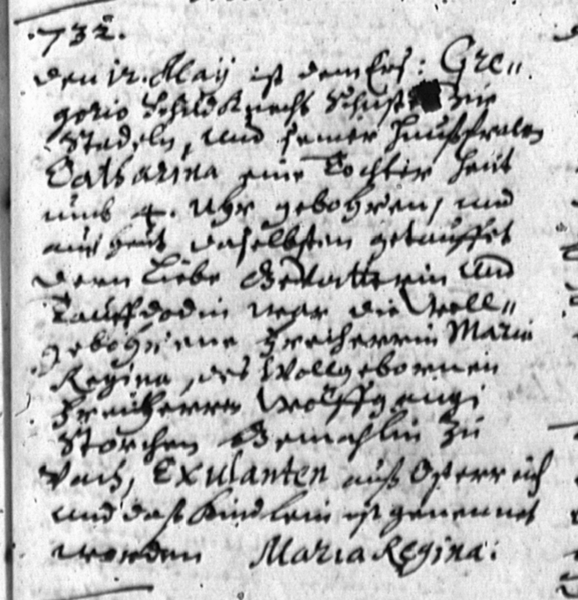 .732.
den 12. Maij ist dem Ers: Gre„
gorio Schildknecht Schust zue
Stadeln, und seiner Haußfrawen
Catharina eine Tochter heut
umb 4. Uhr gebohren, und
auch heut daselbsten getauffet
deren Liebe Gevatterin und
Tauffdodin war die Woll„
gebohrene Freiherrin Maria
Regina, des Wollgebornen
Freiherrn Wolffgangi
Storchen Gemahlin zu
Exulanten auß Österreich
und daß Kindlein ist genennet
worden Maria Regina: